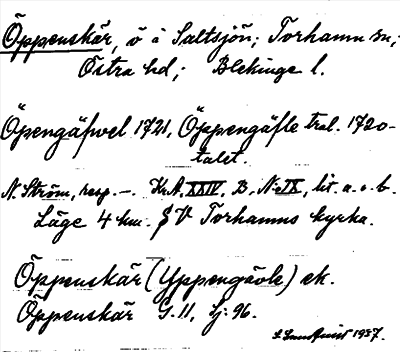 Öppenskär, ö i Saltsjön; Torhamn sn;
Östra hd; Blekinge l.
Öpengäfwel 1721, Öppengäfle tral. 1720-
talet.
N. Ström, resp. –. Kr.A. XXIV. B. N:o IX, lit. a. o. b.
Läge 4 km. S V Torhamns kyrka.
Öppenskär (Yppengävle) ek.
Öppenskär G. 11, Lj: 96.
1937.